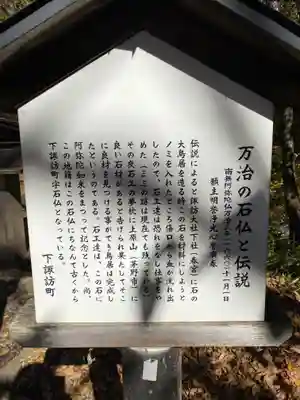 万治の石仏と伝説
南無阿弥陀仏万治三年(一六六〇)十一月一日
願主明誉浄光心誉慶春
伝説によると諏訪大社下社(春宮)に石の
大鳥居を造る時この石を材料にしようと
ノミを入れたところ傷口から血が流れ出
したので、石工達は恐れをなし仕事をや
めた(ノミの跡は現在でも残っている)
その夜石工の夢枕に上原山(茅野市)に
良い石材があると告げられ果たしてそこ
に良材を見つける事ができ鳥居は完成し
たというのである。石工達は、この石に
阿弥陀如来をまつって記念とした。尚、
この地籍はこの石仏にちなんで古くから
下諏訪町字石仏となっている。
下諏訪町